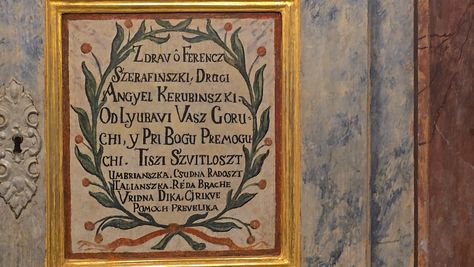 Zdrav ô Ferencz
Szerafinszki, Drugi
Angyel Kerubinszki
Od Lyubavi Vasz Goru-
chi, y Pri Bogu Premogu
chi. Tiszi Szvitloszt
Umbrianszka, Csudna Radoszt
Italianszka. Réda Brache
Vridna Dika, Czrikve
Pomoch Prevelika